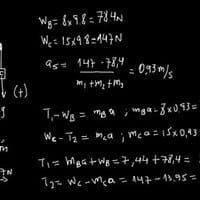 W_B = 8x9.8 = 78,4N
W_C = 15x9.8 = 147N
a_s = 147 - 78,4 / m_1 + m_2 + m_3 = 0,93 m/s
(+)
T_1 - W_B = m_B a ; m_B a = 8x0,93 =
W_C - T_2 = m_C a ; m_C a = 15x0,93
T_1 = m_B a + W_B = 7,44 + 78,4 =
T_2 = W_C - m_C a = 147 - 13.95 =